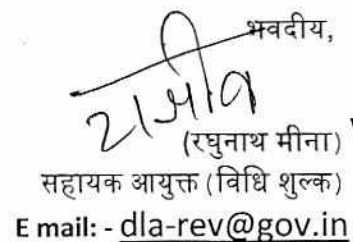 भवदीय,
(रघुनाथ मीना)
सहायक आयुक्त (विधि शुल्क)
E mail: - dla-rev@gov.in